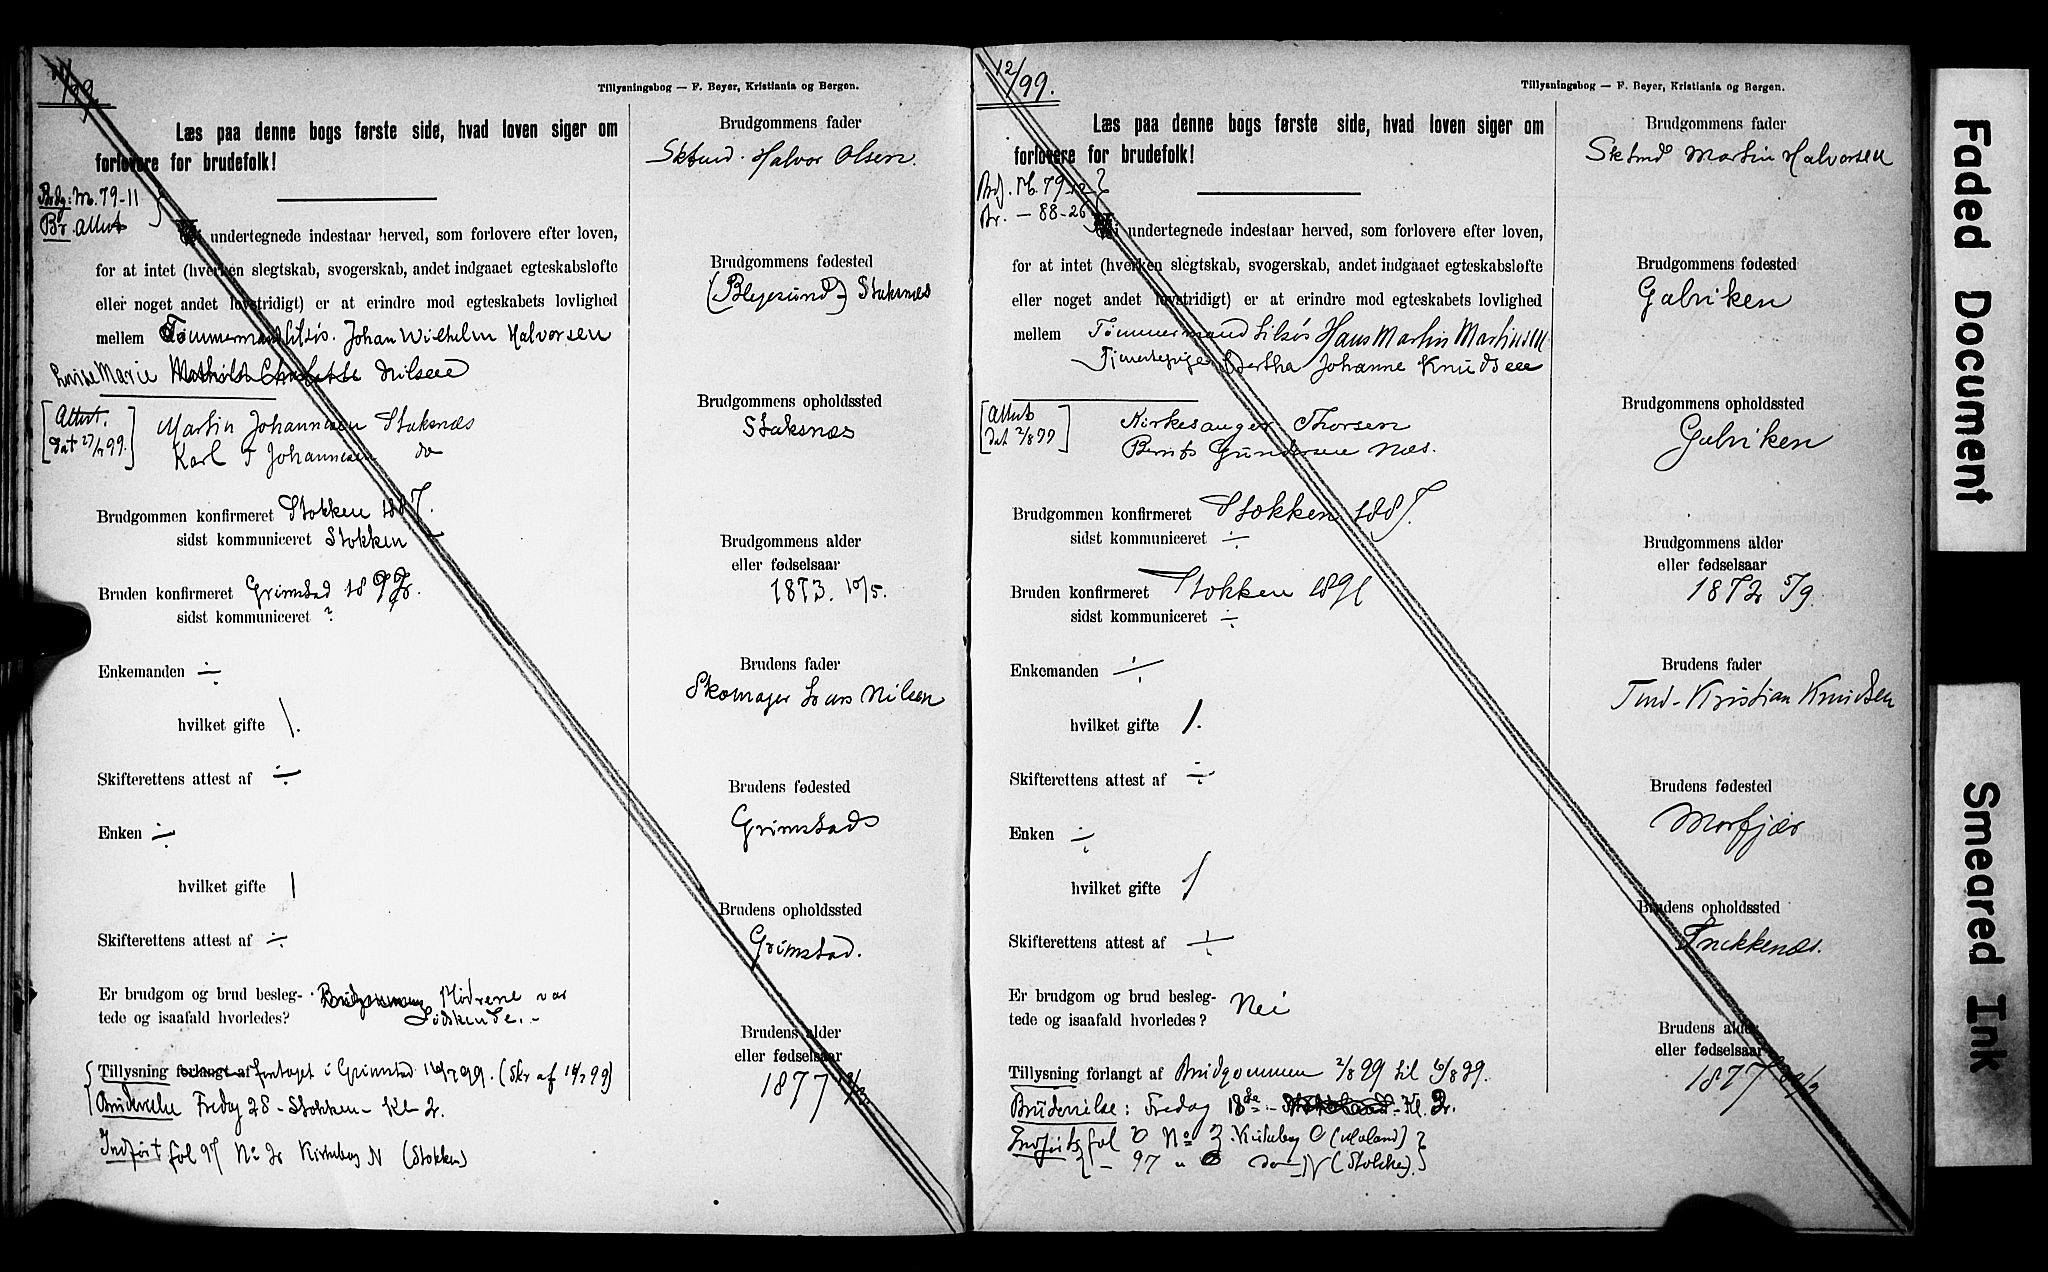 Tillysningsbog — F. Beyer, Kristiania og Bergen.
Læs paa denne bogs første side, hvad loven siger om
forlovere for brudefolk!
Brdg: M. 79-11
Br. Attest
Vi undertegnede indestaar herved, som forlovere efter loven,
for at intet (hverken slegtskab, svogerskab, andet indgaaet egteskabsløfte
eller noget andet lovstridigt) er at erindre mod egteskabets lovlighed
mellem Tømmermand tilsøs. Johan Wilhelm Halvorsen
Lovise Marie Mathilde Charlotte Nilsen
[Attest. dat 27/7 99.]
Martin Johannesen Staksnæs
Karl F Johannesen do
Brudgommen konfirmeret Stokken 1887.
sidst kommuniceret Stokken
Bruden konfirmeret Grimstad 1892.
sidst kommuniceret ?
Enkemanden ÷
hvilket gifte 1.
Skifterettens attest af ÷
Enken ÷
hvilket gifte 1
Skifterettens attest af ÷
Er brudgom og brud besleg- Mødrene var
tede og isaafald hvorledes? Södskende.
Tillysning forlangt af foretaget i Grimstad 16/7 99. (Skr af 19/7 99)
Brudevielse Fredag 28 - Stokken - Kl 2.
Indført fol 97 No 2 Kirkebog N (Stokken)
Brudgommens fader
Sktmd. Halvor Olsen.
Brudgommens fødested
(Blejesund) Staksnæs
Brudgommens opholdssted
Staksnæs
Brudgommens alder
eller fødselsaar
1873. 10/5.
Brudens fader
Skomager Lars Nilsen
Brudens fødested
Grimstad
Brudens opholdssted
Grimstad.
Brudens alder
eller fødselsaar
1877
12/99.
Tillysningsbog — F. Beyer, Kristiania og Bergen.
Læs paa denne bogs første side, hvad loven siger om
forlovere for brudefolk!
Brdg. M. 79-12
Br. — 88-26
Vi undertegnede indestaar herved, som forlovere efter loven,
for at intet (hverken slegtskab, svogerskab, andet indgaaet egteskabsløfte
eller noget andet lovstridigt) er at erindre mod egteskabets lovlighed
mellem Tømmermand tilsøs Hans Martin Martinsen
Tjenestepige Bertha Johanne Knudsen
[Attest dat 2/8 99]
Kirkesanger Thorsen
Bernts Gundersen Næs.
Brudgommen konfirmeret Stokken 1887.
sidst kommuniceret ÷
Bruden konfirmeret Stokken 1891
sidst kommuniceret ÷
Enkemanden ÷
hvilket gifte 1.
Skifterettens attest af ÷
Enken ÷
hvilket gifte 1
Skifterettens attest af ÷
Er brudgom og brud besleg- Nei
tede og isaafald hvorledes?
Tillysning forlangt af Brudgommen 2/8 99 til 6/8 99.
Brudevielse: Fredag 18de - Kl. 2.
Indført fol No 3 Kirkebog C (Moland)
— 97 " do — N (Stokken).
Brudgommens fader
Sktmd Martin Halvorsen
Brudgommens fødested
Galviken
Brudgommens opholdssted
Galviken
Brudgommens alder
eller fødselsaar
1872 5/9.
Brudens fader
Tmd. Kristian Knudsen
Brudens fødested
Morfjær
Brudens opholdssted
Brudens alder
eller fødselsaar
1877
Faded Document
Smeared Ink